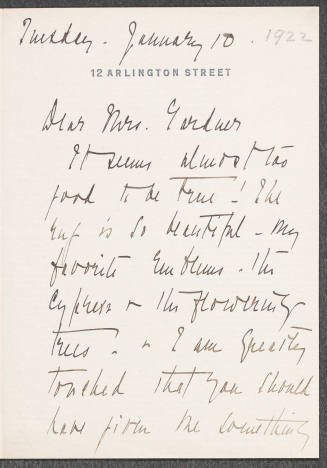 Tuesday. January 10. 1922
12 ARLINGTON STREET
Dear Mrs. Gardner
It seems almost too
good to be true! The
rug is so beautiful - my
favorite Emblems. The
Cypress & the flowering
trees. & I am greatly
touched that you should
have given me something